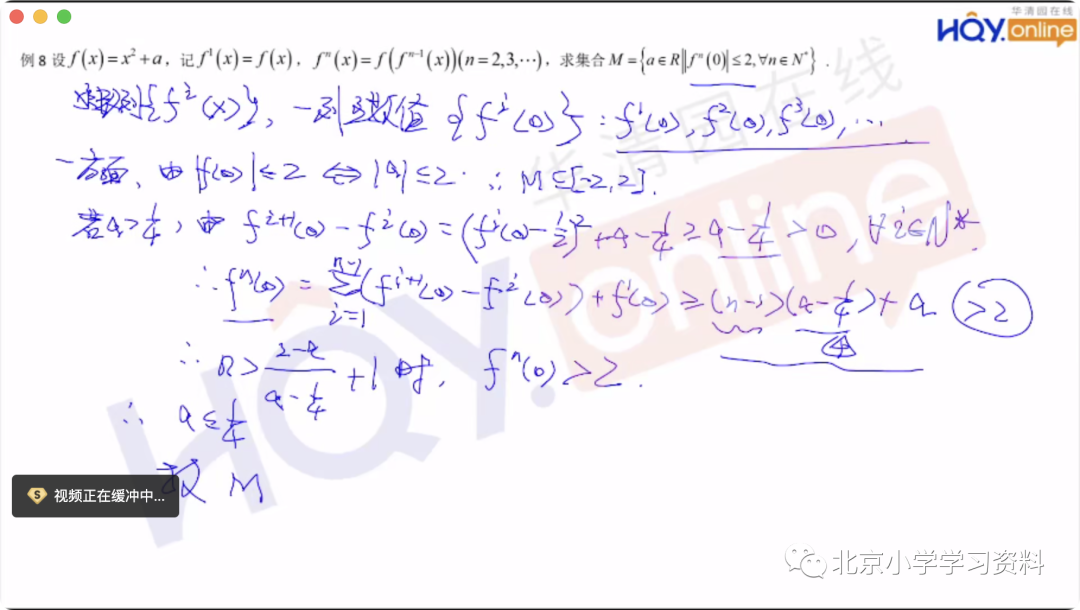 华清园在线
HQY.online
例8 设f(x)=x²+a，记f¹(x)=f(x)，fⁿ(x)=f(fⁿ⁻¹(x))(n=2,3,⋯)，求集合M={a∈R||fⁿ(0)|≤2,∀n∈N*}．
{fⁱ(x)}，一列函数值{fⁱ(0)}：f¹(0), f²(0), f³(0), …
一方面，由|f(0)|≤2⇔|a|≤2. ∴M∈[-2,2].
若a>1/4，由 fⁱ⁺¹(0)-fⁱ(0)=(fⁱ(0)-1/2)²+a-1/4≥a-1/4>0, ∀i∈N*.
∴fⁿ(0)=∑ⁿ⁻¹ᵢ₌₁(fⁱ⁺¹(0)-fⁱ(0))+f¹(0)≥(n-1)(a-1/4)+a >2
∴n>(2-a)/(a-1/4)+1时，fⁿ(0)>2.
∴a≤1/4
故 M
视频正在缓冲中...
华清园在线
HQY.online
北京小学学习资料